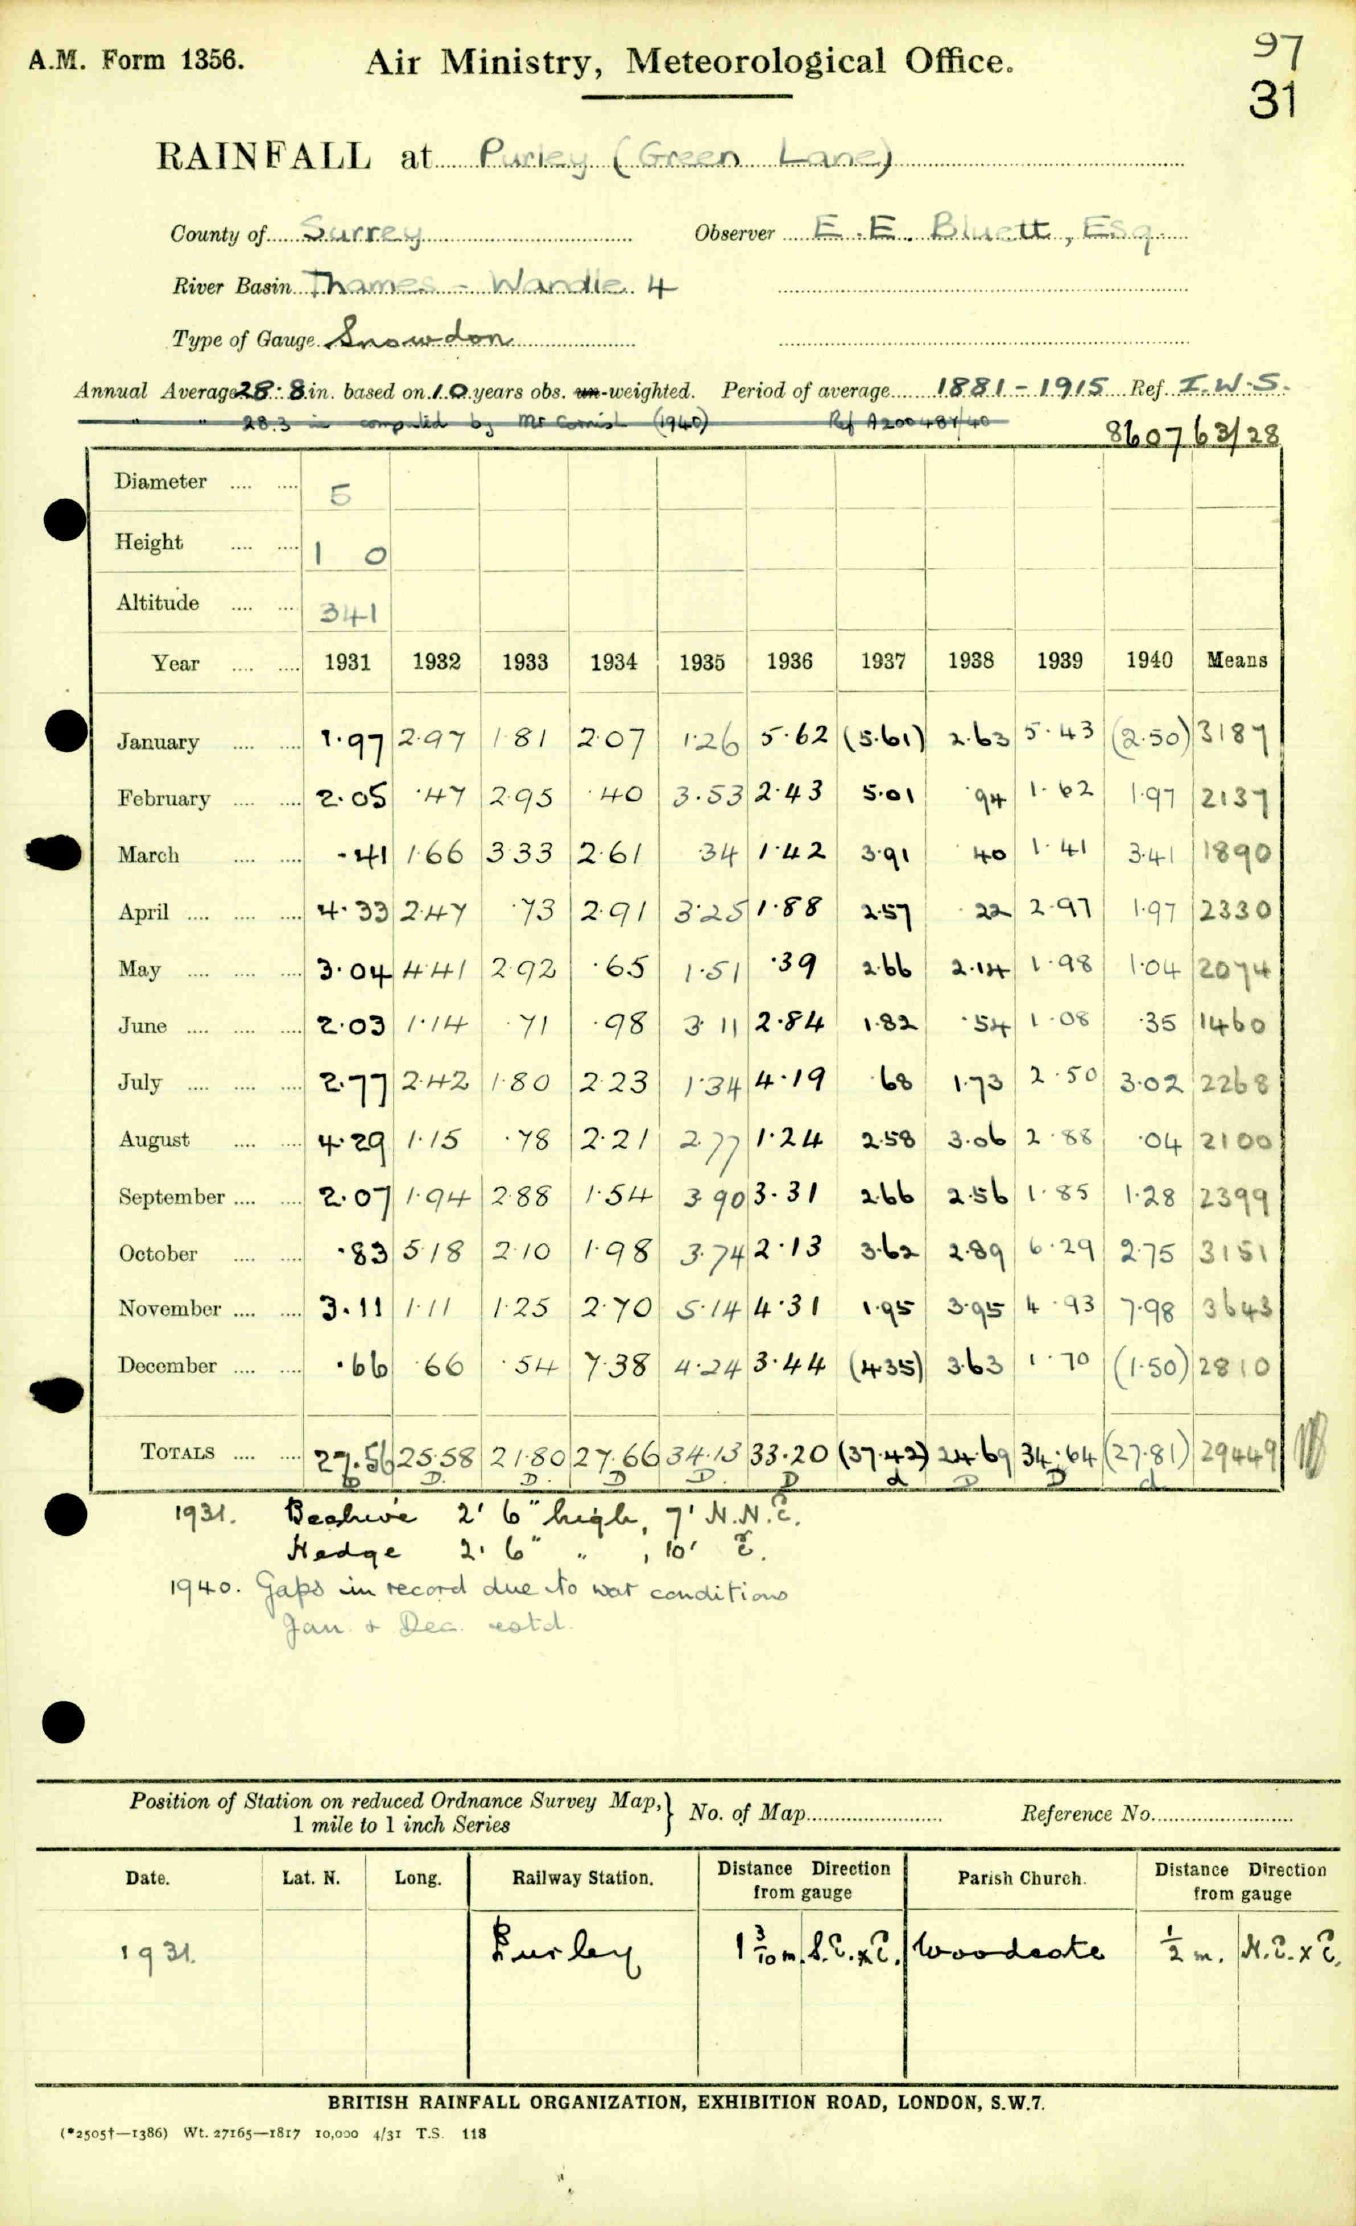 A.M. Form 1356. Air Ministry, Meteorological Office. 97
31
RAINFALL at Purley (Green Lane)
County of Surrey Observer E. E. Bluett, Esq.
River Basin Thames - Wandle 4
Type of Gauge Snowdon
Annual Average 28.8 in. based on 10 years obs. un-weighted. Period of average 1881-1915 Ref. I.W.S.
" " 28.3 in computed by Mr Cornish (1940) Ref A200484/40
860763/28
Diameter .... .... 5
Height .... .... 1 0
Altitude .... .... 341
Year .... .... 1931 1932 1933 1934 1935 1936 1937 1938 1939 1940 Means
January .... .... 1.97 2.97 1.81 2.07 1.26 5.62 (5.61) 2.63 5.43 (2.50) 3187
February .... .... 2.05 .47 2.95 .40 3.53 2.43 5.01 .94 1.62 1.97 2137
March .... .... .41 1.66 3.33 2.61 .34 1.42 3.91 .40 1.41 3.41 1890
April .... .... .... 4.33 2.47 .73 2.91 3.25 1.88 2.57 .22 2.97 1.97 2330
May .... .... .... 3.04 4.41 2.92 .65 1.51 .39 2.66 2.14 1.98 1.04 2074
June .... .... .... 2.03 1.14 .71 .98 3.11 2.84 1.82 .54 1.08 .35 1460
July .... .... .... 2.77 2.42 1.80 2.23 1.34 4.19 .68 1.73 2.50 3.02 2268
August .... .... 4.29 1.15 .78 2.21 2.77 1.24 2.58 3.06 2.88 .04 2100
September .... .... 2.07 1.94 2.88 1.54 3.90 3.31 2.66 2.56 1.85 1.28 2399
October .... .... .83 5.18 2.10 1.98 3.74 2.13 3.62 2.89 6.29 2.75 3151
November .... .... 3.11 1.11 1.25 2.70 5.14 4.31 1.95 3.95 4.93 7.98 3643
December .... .... .66 .66 .54 7.38 4.24 3.44 (4.35) 3.63 1.70 (1.50) 2810
TOTALS .... .... 27.56 25.58 21.80 27.66 34.13 33.20 (37.42) 24.69 34.64 (27.81) 29449
D D. D. D D. D d D D d
1931. Beehive 2' 6" high, 7' N.N.E.
Hedge 2' 6" " , 10' E.
1940. Gaps in record due to war conditions
Jan. + Dec. estd.
Position of Station on reduced Ordnance Survey Map, } No. of Map Reference No.
1 mile to 1 inch Series
Date. Lat. N. Long. Railway Station. Distance Direction from gauge Parish Church. Distance Direction from gauge
1931. Purley 1 3/10 m. S.E.xE. Woodcote 1/2 m. N.E.xE.
BRITISH RAINFALL ORGANIZATION, EXHIBITION ROAD, LONDON, S.W.7.
(*2505†—1386) Wt. 27165—1817 10,000 4/31 T.S. 118